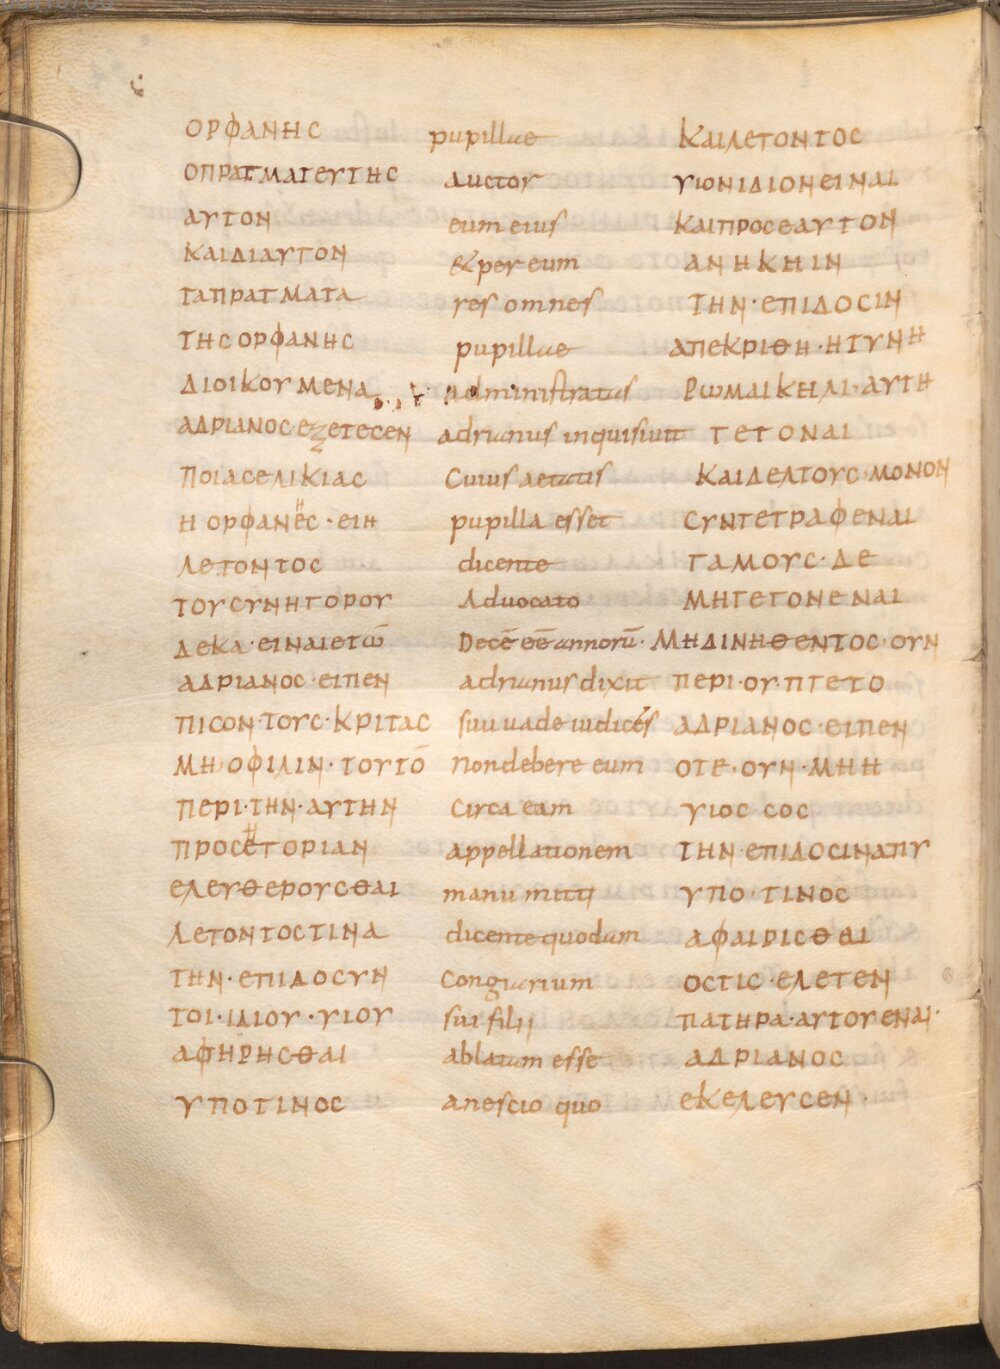 ΟΡΦΑΝΗΣ
ΟΠΡΑΓΜΑΤΕΥΤΗΣ
ΑΥΤΟΝ
ΚΑΙΔΙΑΥΤΟΝ
ΤΑΠΡΑΓΜΑΤΑ
ΤΗΣΟΡΦΑΝΗΣ
ΔΙΟΙΚΟΥΜΕΝΑ
ΑΔΡΙΑΝΟΣΕΖΕΤΕΣΕΝ
ΠΟΙΑΣΕΛΙΚΙΑΣ
ΗΟΡΦΑΝΕΣ·ΕΙΗ
ΛΕΓΟΝΤΟΣ
ΤΟΥΣΥΝΗΓΟΡΟΥ
ΔΕΚΑ·ΕΙΝΑΙΕΤῶ̄
ΑΔΡΙΑΝΟΣ·ΕΙΠΕΝ
ΠΙΣΟΝ·ΤΟΥΣ·ΚΡΙΤΑΣ
ΜΗ·ΟΦΙΛΙΝ·ΤΟΥΤΟ̄
ΠΕΡΙ·ΤΗΝ·ΑΥΤΗΝ
ΠΡΟΣΕΓΟΡΙΑΝ
ΕΛΕΥΘΕΡΟΥΣΘΑΙ
ΛΕΓΟΝΤΟΣΤΙΝΑ
ΤΗΝ·ΕΠΙΔΟΣΥΝ
ΤΟΙ·ΙΔΙΟΥ·ΥΙΟΥ
ΑΦΗΡΗΣΘΑΙ
ΥΠΟΤΙΝΟΣ
pupillae
auctor
eum eius
& per eum
res omnes
pupillae
administratus
adrianus inquisiuit
Cuius aetatis
pupilla esset
dicente
Aduocato
Decē eē annorū·
adrianus dixit
suuade iudicés
Non debere eum
Circa eam
appellationem
manu mitti
dicente quodam
Congiarium
sui filii
ablatum esse
anescio quo
ΚΑΙΛΕΓΟΝΤΟΣ
ΥΙΟΝΙΔΙΟΝΕΙΝΑΙ
ΚΑΙΠΡΟΣΕΑΥΤΟΝ
ΑΝΗΚΗΙΝ
ΤΗΝ·ΕΠΙΔΟΣΙΝ
ΑΠΕΚΡΙΘΗ·ΗΓΥΝΗ
ΡΩΜΑΙΚΗΛΙ·ΑΥΤΗ
ΓΕΓΟΝΑΙ
ΚΑΙΔΕΛΤΟΥΣ·ΜΟΝΟΝ
ΣΥΝΓΕΓΡΑΦΕΝΑΙ
ΓΑΜΟΥΣ·ΔΕ
ΜΗΓΕΓΟΝΕΝΑΙ
ΜΗΔΙΝΗΘΕΝΤΟΣ·ΟΥΝ
ΠΕΡΙ·ΟΥ·ΠΤΕΤΟ
ΑΔΡΙΑΝΟΣ·ΕΙΠΕΝ
ΟΤΕ·ΟΥΝ·ΜΗΗ
ΥΙΟΣ ΣΟΣ
ΤΗΝ·ΕΠΙΔΟΣΙΝΑΠΥ
ΥΠΟ·ΤΙΝΟΣ
ΑΦΑΙΡΙΣΘΑΙ
ΟΣΤΙΣ·ΕΛΕΓΕΝ
ΠΑΤΗΡΑ·ΑΥΤΟΥΕΝΑΙ·
ΑΔΡΙΑΝΟΣ
ΕΚΕΛΕΥΣΕΝ·